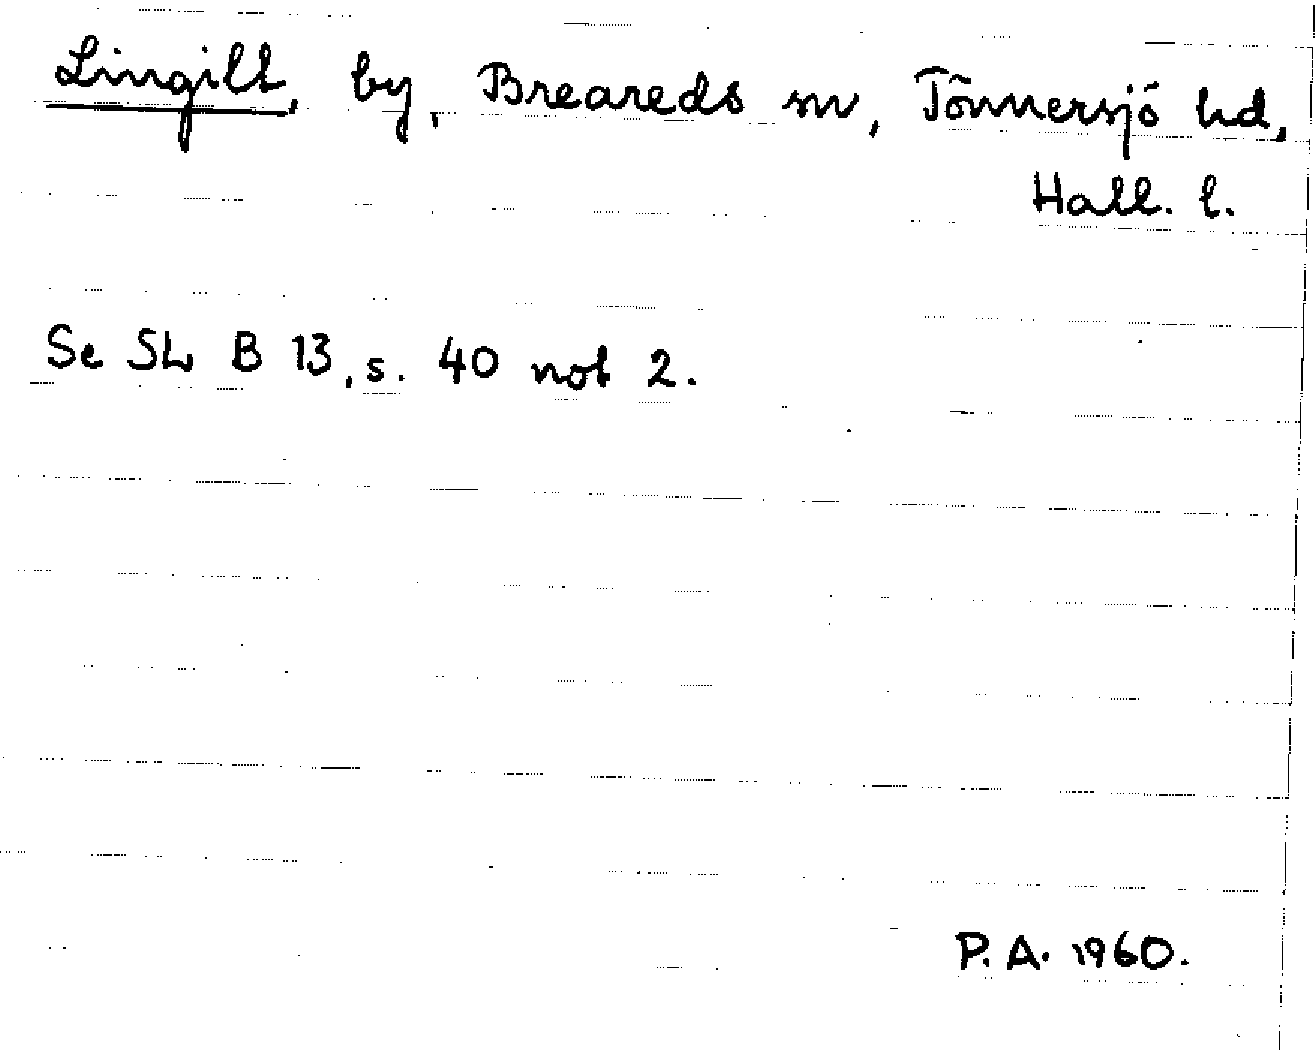 Lingilt, by, Breareds sn, Tönnersjö hd,
Hall. l.
Se SL B 13, s. 40 not 2.
P.A. 1960.